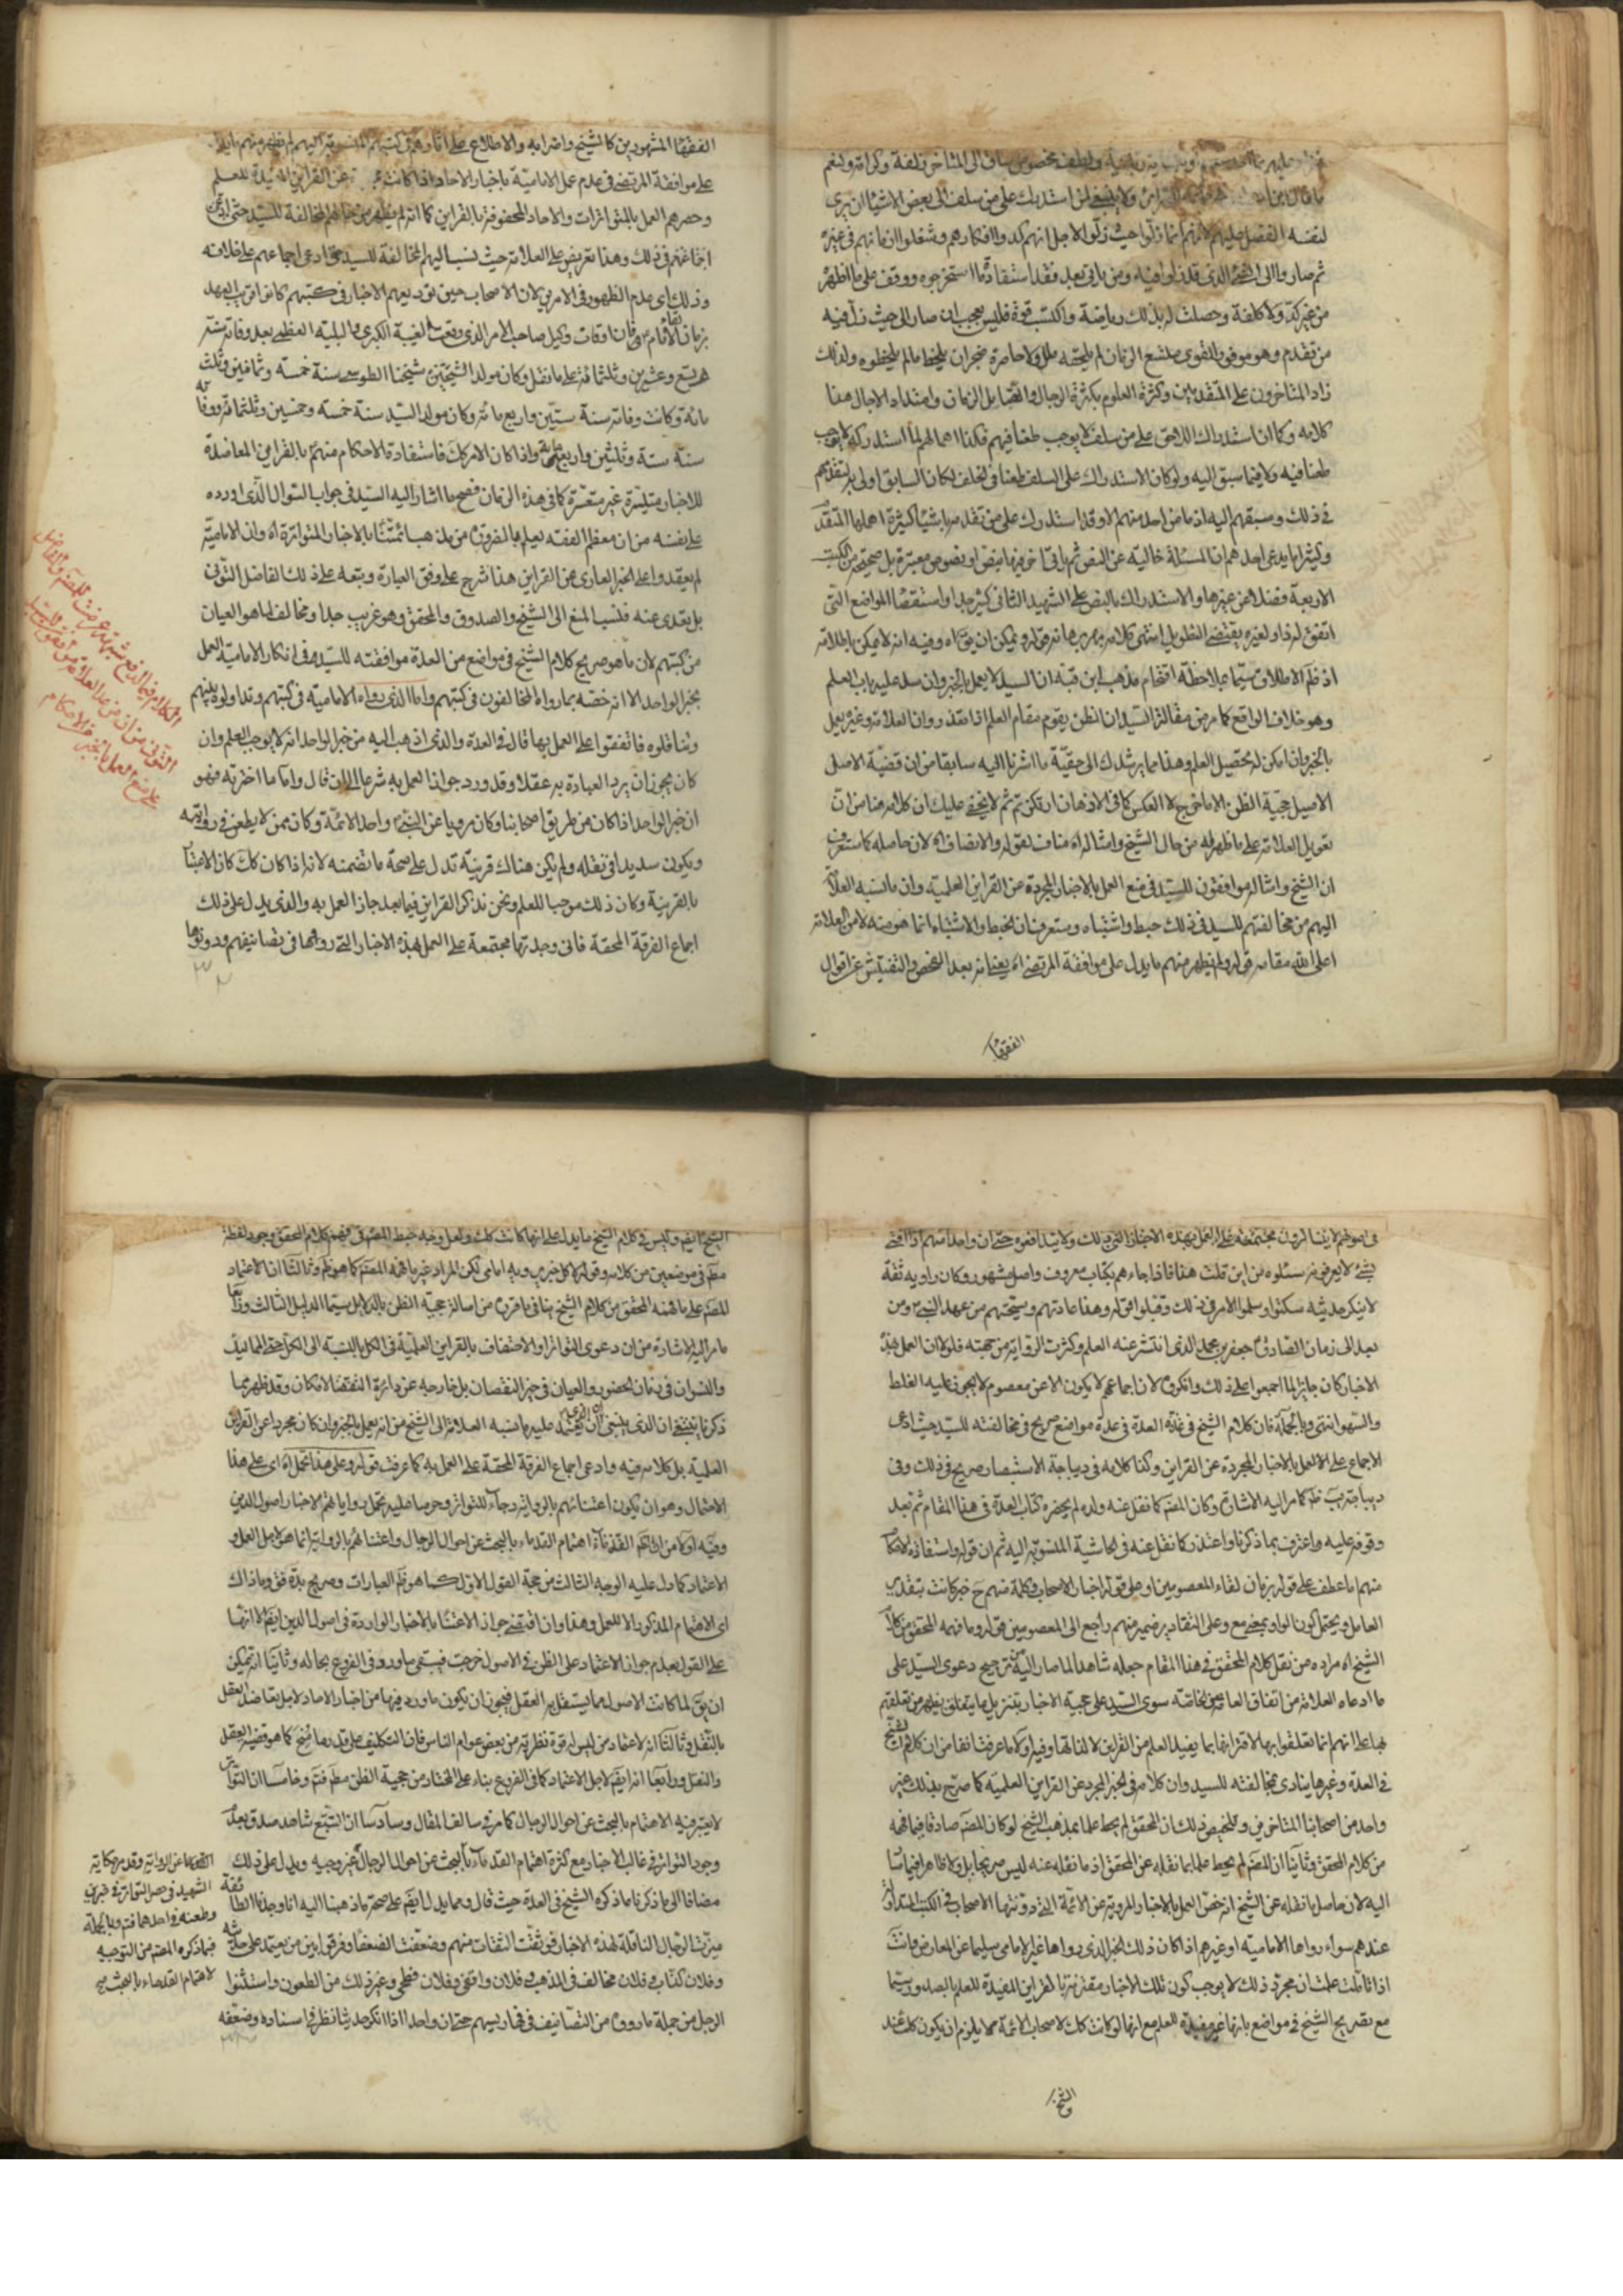 ما قال ابن ولا ينبغي لمن استدرك على من سلف الى بعض الاشياء ان يرى
لنفسه الفضل عليهم لانهم انما زلّوا حيث زلّوا لاجل انهم كدوا افكارهم وشغلوا ازمانهم في غيره
ثم صاروا الى الشئ الذي قد زلوا فيه ومن ياتي بعد فقد استفاد ما استخرجوه ووقف على ما اظهره
من غير كدّ ولا كلفة وحصلت له بذلك رياضة واكتسب قوة فليس بعجب ان صار الى حيث زل فيه
من تقدم وهو موفور القوى متسع الزمان لم يلحقه ملل ولا خامره ضجر ان يلحظ ما لم يلحظوه ولذلك
زاد المتاخرون على المتقدمين وكثرة العلوم بكثرة الرجال واتصال الزمان وامتداد الاجال هذا
كلامه وكما ان استدراك اللاحق على من سلف لا يوجب طعنا فيهم فكذا اهمالهم لما استدركه لا يوجب
طعنا فيه ولا فيما سبق اليه ولو كان الاستدراك على السلف طعنا في الخلف لكان السابق اولى به لتقدمهم
في ذلك وسبقهم اليه اذ ما من احد منهم الا وقد استدرك على من تقدمه باشياء كثيرة اهملها المتقدم
وكثيرا ما يدعى احدهم ان المسئلة خالية عن النص ثم ياتي اخر فيها بنص او نصوص معتبرة بل صحيحة من الكتب
الاربعة فضلا عن غيرها والاستدراك بالنص على الشهيد الثاني كثير جدا واستقصاء المواضع التي
اتفق له ذلك ولغيره يقتضي التطويل انتهى كلامه قوله ويمكن ان يقال اه وفيه انه لا يمكن ابطلاقه
اذ فلم الاطلاق سيما بملاحظة اقتحام مذهب ابن قبة ان السيد لا يعمل بالخبر وان سد عليه باب العلم
وهو خلاف الواقع كما مر من مقالة السيد ان الظن يقوم مقام العلم اذا تعذر وان العلامة وغيره يعمل
بالخبر وان امكن له تحصيل العلم وهذا مما يرشدك الى حقيّة ما اشرنا اليه سابقا من ان قضيّة الاصل
الاصيل حجية الظن الا ما خرج لا العكس كما في الاذهان ارتكز ثم لا يخفى عليك ان كلامه هنا من ان
تعويل العلامة على ما ظهر له من حال الشيخ وامثاله اه مناف لقوله والانصاف اه لان حاصله كما ستعرف
ان الشيخ وامثاله موافقون للسيد في منع العمل بالاخبار المجردة عن القراين العلمية وان ما نسبه العلامة
اليهم من مخالفتهم للسيد في ذلك خبط واشتباه وستعرف ان الخبط والاشتباه انما هو منه لا من العلامة
اعلى الله مقامه قوله ولم يظهر منهم ما يدل على موافقة المرتضى اه يعني انه بعد الفحص والتفتيش عن اقوال
الفقها
الفقها المشهورين كالشيخ واضرابه والاطلاع على اثارهم في كتبهم المنسوبة اليهم لم يظهر منهم ما يدل
على موافقة المرتضى في عدم عمل الامامية باخبار الاحاد اذا كانت عن القراين المفيدة للعلم
وحصرهم العمل بالمتواترات والاحاد المحفوفة بالقراين كما انه لم يظهر من حالهم المخالفة للسيد حتى ادعى
اجماعهم في ذلك وهذا تعريض على العلامة حيث نسب اليهم المخالفة للسيد حتى ادعى اجماعهم على خلافه
وذلك اى عدم الظهور في الامرين لان الاصحاب حين تدوينهم الاخبار في كتبهم كانوا قريب العهد
بزمان لقاء الامام فان وفات وكيل صاحب الامر الذي وقعت الغيبة الكبرى والبلية العظمى بعد وفاته سنة
تسع وعشرين وثلثمائة على ما نقل وكان مولد الشيخ شيخنا الطوسي سنة خمسة وثمانين وثلث
مائة وكانت وفاته سنة ستين واربع مائة وكان مولد السيد سنة خمسة وخمسين وثلثمائة ووفاته
سنة ستة وثلثين واربعمائة واذا كان الامر كك فاستفادة الاحكام منهم بالقراين المعاضدة
للاخبار متيسّرة غير متعسّرة كما في هذه الزمان فصح ما اشار اليه السيد في جواب السوال الذي اورده
على نفسه من ان معظم الفقه يعلم بالضرورة من مذهب ائمتنا بالاخبار المتواترة اه وان الامامية
لم يعتمدوا على الخبر العاري عن القراين هذا شرح على وفق العبارة وتبعه على ذلك الفاضل التوني
بل تعدى عنه فنسب المنع الى الشيخ والصدوق والمحقق وهو غريب جدا ومخالف لما هو العيان
من كتبهم لان ما هو صريح كلام الشيخ في مواضع من العدة موافقته للسيد في انكار الامامية العمل
بخبر الواحد الا انه خصه بما رواه المخالفون في كتبهم واما الذي رواه الامامية في كتبهم وتداولوه بينهم
وتناقلوه فاتفقوا على العمل بها قال في العدة والذي اذهب اليه من خبر الواحد انه لا يوجب العلم وان
كان يجوز ان يرد العبادة به عقلا وقد ورد جواز العمل به شرعا الى ان قال واما ما اخترته فهو
ان خبر الواحد اذا كان من طريق اصحابنا وكان مرويا عن النبي واحد الائمة وكان ممن لا يطعن في روايته
ويكون سديدا في نقله ولم يكن هناك قرينة تدل على صحة ما تضمنه لانه اذا كان كك كان الاعتبار
بالقرينة وكان ذلك موجبا للعلم ونحن نذكر القراين فيما بعد جاز العمل به والذي يدل على ذلك
اجماع الفرقة المحقة فاني وجدتها مجتمعة على العمل بهذه الاخبار التي رووها في تصانيفهم ودونوها
في اصولهم لا يتناكرون مجتمعة على العمل بهذه الاخبار التي ذلك ولا يتدافعوه حتى ان واحدا منهم اذا افتى
بشئ لا يعرفونه سئلوه من اين قلت هذا فاذا جاءهم بكتاب معروف واصل مشهور وكان راويه ثقة
لا ينكر حديثه سكتوا وسلموا الامر في ذلك وقبلوا قوله وهذا عادتهم وسجيتهم من عهد النبي ومن
بعد الى زمان الصادق جعفر بن محمد الذي انتشر عنه العلم وكثرت الرواية من جهته فلولا ان العمل بهذه
الاخبار كان جايزا لما اجمعوا على ذلك وانكروه لان اجماعهم لا يكون الا عن معصوم لا يجوز عليه الغلط
والسهو انتهى وبالجملة فان كلام الشيخ في هذه العدة في عدة مواضع صريح في مخالفته للسيد حيث ادعى
الاجماع على العمل بالاخبار المجردة عن القراين وكذا كلامه في ديباجة الاستبصار صريح في ذلك وفي
ديباجة يب ظ كما مر اليه الاشارة وكان المصنف كما نقل عنه ولده لم يحضره كتاب العدة في هذا المقام ثم بعد
وقوفه عليه واعترف بما ذكرنا واعتذر كما نقل عنه في الحاشية المنسوبة اليه ثم ان قوله واستفادة الاحكام
منهم اما عطف على قوله بزمان لقاء المعصومين او على قوله اخبار الاصحاب وكلمة منهم ح خبر كانت بتقدير
العامل ويحتمل كون الواو بمعنى مع وعلى التقادير ضمير منهم راجع الى المعصومين قوله وما فهمه المحقق من كلام
الشيخ اه مراده من نقل كلام المحقق في هذا المقام جعله شاهدا لما صار اليه من ترجيح دعوى السيد على
ما ادعاه العلامة من اتفاق العامة والخاصة سوى السيد على حجية الاخبار بتنزيل ما يتعلق بظهر من تعلقهم
بها على انهم انما تعلقوا بها لاقترانها بما يفيد العلم من القراين لا لذاتها وفيه اولا ما عرفت انفا من ان كلام الشيخ
في العدة وغيرها ينادي بمخالفته للسيد وان كلامه في الخبر المجرد عن القراين العلمية كما صرح بذلك غير
واحد من اصحابنا المتاخرين وتلخيص ذلك ان المحقق لم يحط علما بمذهب الشيخ لو كان المصنف صادقا فيما فهمه
من كلام المحقق وثانيا ان المصنف لم يحيط علما بما نقله عن المحقق اذ ما نقله عنه ليس صريحا بل ولا ظاهرا فيما شا
اليه لان حاصل ما نقله عن الشيخ انه خص العمل بالاخبار المروية عن الائمة التي دونتها الاصحاب في الكتب المتداولة
عندهم سواء رواها الامامية او غيرهم اذا كان ذلك الخبر الذي رواها غير الامامي سليما عن المعارض وانت
اذا تاملت علمت ان مجرد ذلك لا يوجب كون تلك الاخبار مقترنة بالقراين المفيدة للعلم بالصدور سيما
مع تصريح الشيخ في مواضع بانها غير مفيدة للعلم مع انها لو كانت كك لاصحاب الائمة مما يلزم ان يكون كك عند
الشيخ
الشيخ ايضا وليس في كلام الشيخ ما يدل على انها كانت كك ولعل وجه خبط المصنف في فهم كلام المحقق وجود لفظ
مظ في موضعين من كلامه وقوله لا كل خبر يرويه امامي لكن المراد غير ما فهمه المصنف كما هو ظ وثالثا ان الاعتماد
المصنف على ما فهمه المحقق من كلام الشيخ ينافي ما قرره من اصالة حجية الظن بالدلايل سيما الدليل الثالث ورابعا
ما مر اليه الاشارة من ان دعوى التواتر او الاحتفاف بالقراين العلمية في الكل بالنسبة الى الكل حتى
والنسوان في زمان الحضور والعيان في حيز النقصان بل خارجه عن دائرة الامكان وقد ظهر بما
ذكرنا ينبغي ان الذي ينبغي ان يعتمد عليه ما نسبه العلامة الى الشيخ من انه يعمل بالخبر وان كان مجردا عن القراين
العلمية بل كلامه فيه وادعى اجماع الفرقة المحقة على العمل به كما عرفت قوله وعلى هذا تحمل اه اى على هذا
الاحتمال وهو ان يكون اعتنائهم بالرواية رجاء للتواتر وحرصا عليه تحمل روايتهم لاخبار اصول الدين
وفيه اولا من اهتمام القدماء بالبحث عن احوال الرجال واعتنائهم بالرواية انما هو لاجل العمل و
الاعتماد كما دل عليه الوجه الثالث من حجة القول الاول كما هو ظ العبارات وصريح بعض وما ذاك
اى الاهتمام المذكور الا للعمل وهذا وان اقتضى جواز الاعتناء بالاخبار الواردة في اصول الدين ايضا الا انها
على القول بعدم جواز الاعتماد على الظن في الاصول خرجت فبقى ما ورد في الفروع بحاله وثانيا انه يمكن
ان يق لما كانت الاصول مما يستقل به العقل فيجوز ان يكون ما ورد فيها من اخبار الاحاد لاجل تعاضد العقل
بالنقل وثالثا انه لاعتماد من ليس له قوة نظرية من بعض عوام الناس فان التكليف على قدر ما منح كما هو قضية العقل
والنقل ورابعا انه ايضا لاجل الاعتماد كما في الفروع بناء على المختار من حجية الظن مظ فتم وخامسا ان التواتر
لا يعتبر فيه الاهتمام بالبحث عن احوال الرجال كما مر في سالف المقال وسادسا ان التتبع شاهد صدق بعدم
وجود التواتر في غالب الاخبار مع كثرة اهتمام القدماء بالبحث عن احوال الرجال غير وجيه ويدل على ذلك
مضافا الى ما ذكرنا ما ذكره الشيخ في العدة حيث قال ومما يدل ايضا على صحة ما ذهبنا اليه انا وجدنا الطائفة
ميزت الرجال الناقلة لهذه الاخبار فوثقت الثقات منهم وضعفت الضعفا وفرقوا بين من يعتمد على حديثه
وفلان كذاب وفلان مخالف في المذهب وفلان واقفي وفلان فطحي وغير ذلك من الطعون واستثنوا
الرجل من جملة ما رووه من التصانيف في فهارسهم حتى ان واحدا اذا انكر حديثا نظر في اسناده وضعفه
الشهيد في حصر التواتر في خبرين
وطعنه في احدهما فتم وبالجملة
فما ذكره المصنف من التوجيه
لاهتمام القدماء بالبحث